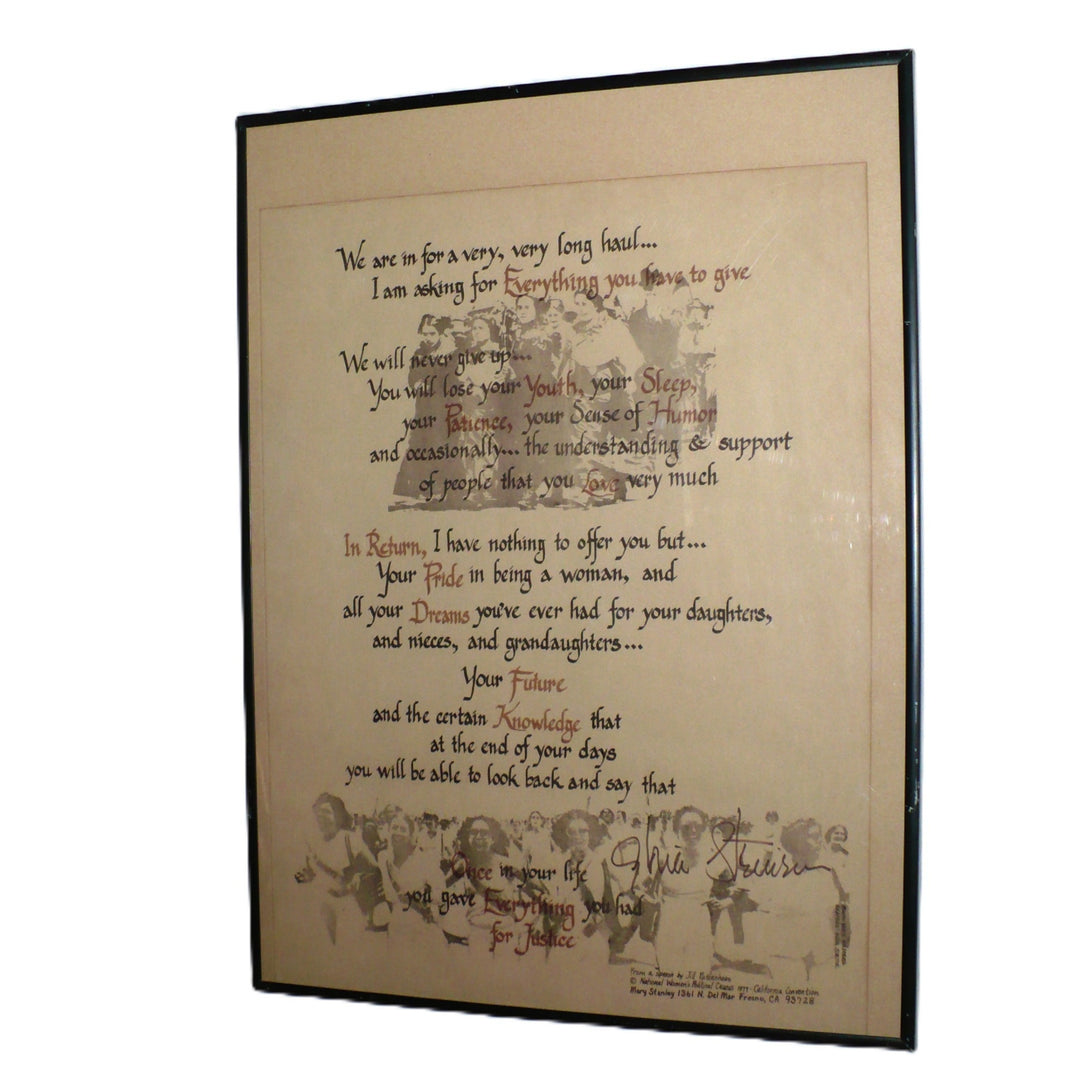 We are in for a very, very long haul...
I am asking for Everything you have to give
We will never give up...
You will lose your Youth, your Sleep,
your Patience, your Sense of Humor
and occasionally... the understanding & support
of people that you Love very much
In Return, I have nothing to offer you but...
Your Pride in being a woman, and
all your Dreams you've ever had for your daughters,
and nieces, and grandaughters...
Your Future
and the certain Knowledge that
at the end of your days
you will be able to look back and say that
Once in your life
you gave Everything you had
for Justice
From a Speech by Jill
© National Women's Political Caucus 1977 - California Convention
Mary Stanley 1361 N. Del Mar Fresno, CA 93728